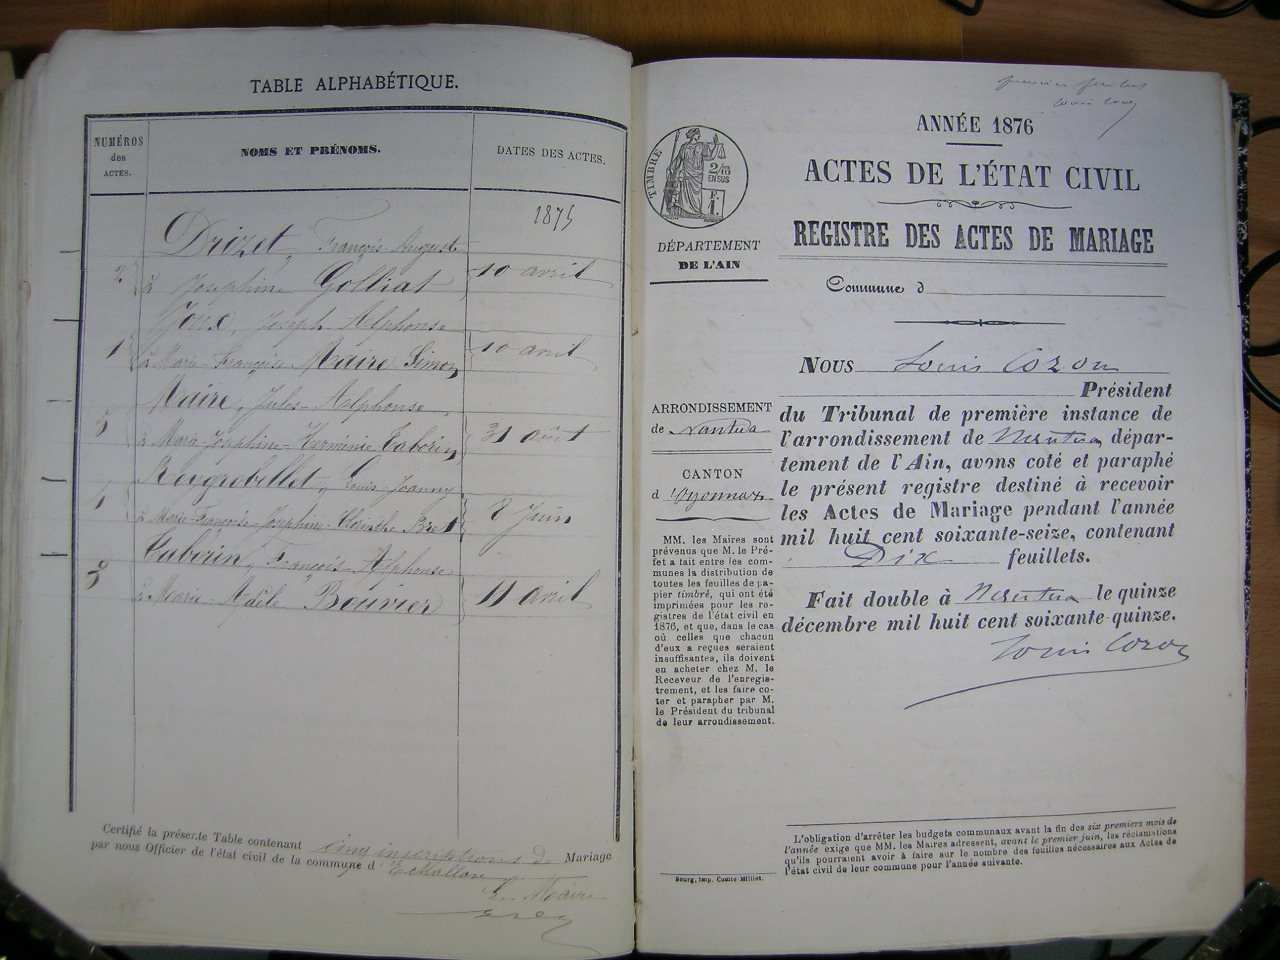 TABLE ALPHABÉTIQUE.
NUMÉROS des ACTES.
NOMS ET PRÉNOMS.
DATES DES ACTES.
1875
Drizet, François-Auguste
2 à Joséphine Golliat 10 avril
Joseph Alphonse
1 à Marie-Françoise Maire Simon 10 avril
Maire, Jules-Alphonse
5 à Marie-Joséphine-Herminie Taberin 31 août
Louis-Joanny
4 à Marie-Françoise-Joséphine 8 Juin
Taberin, François Alphonse
3 à Marie-Adèle Bouvier 11 avril
Certifié la présente Table contenant cinq inscriptions de Mariage
par nous Officier de l'état civil de la commune d'Echallon
Le Maire
ANNÉE 1876
ACTES DE L'ÉTAT CIVIL
REGISTRE DES ACTES DE MARIAGE
Commune d
TIMBRE
2/10 EN SUS
F. 1.
DÉPARTEMENT
DE L'AIN
ARRONDISSEMENT
de Nantua
CANTON
d'Oyonnax
MM. les Maires sont
prévenus que M. le Pré-
fet a fait entre les com-
munes la distribution de
toutes les feuilles de pa-
pier timbré, qui ont été
imprimées pour les re-
gistres de l'état civil en
1876, et que, dans le cas
où celles que chacun
d'eux a reçues seraient
insuffisantes, ils doivent
en acheter chez M. le
Receveur de l'enregis-
trement, et les faire co-
ter et parapher par M.
le Président du tribunal
de leur arrondissement.
NOUS Louis Cozon
Président
du Tribunal de première instance de
l'arrondissement de Nantua dépar-
tement de l'Ain, avons coté et paraphé
le présent registre destiné à recevoir
les Actes de Mariage pendant l'année
mil huit cent soixante-seize, contenant
Dix feuillets.
Fait double à Nantua le quinze
décembre mil huit cent soixante-quinze.
Louis Cozon
Bourg, Imp. Comte-Milliet.
L'obligation d'arrêter les budgets communaux avant la fin des six premiers mois de
l'année exige que MM. les Maires adressent, avant le premier juin, les réclamations
qu'ils pourraient avoir à faire sur le nombre des feuilles nécessaires aux Actes de
l'état civil de leur commune pour l'année suivante.